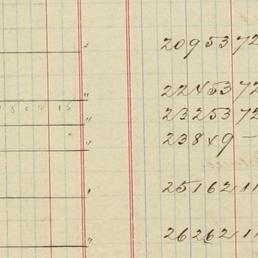 " 2095372
" 2245372
1 5 0 7 1 5
" 2325372
" 23849 —
" 2516211
" 2626211